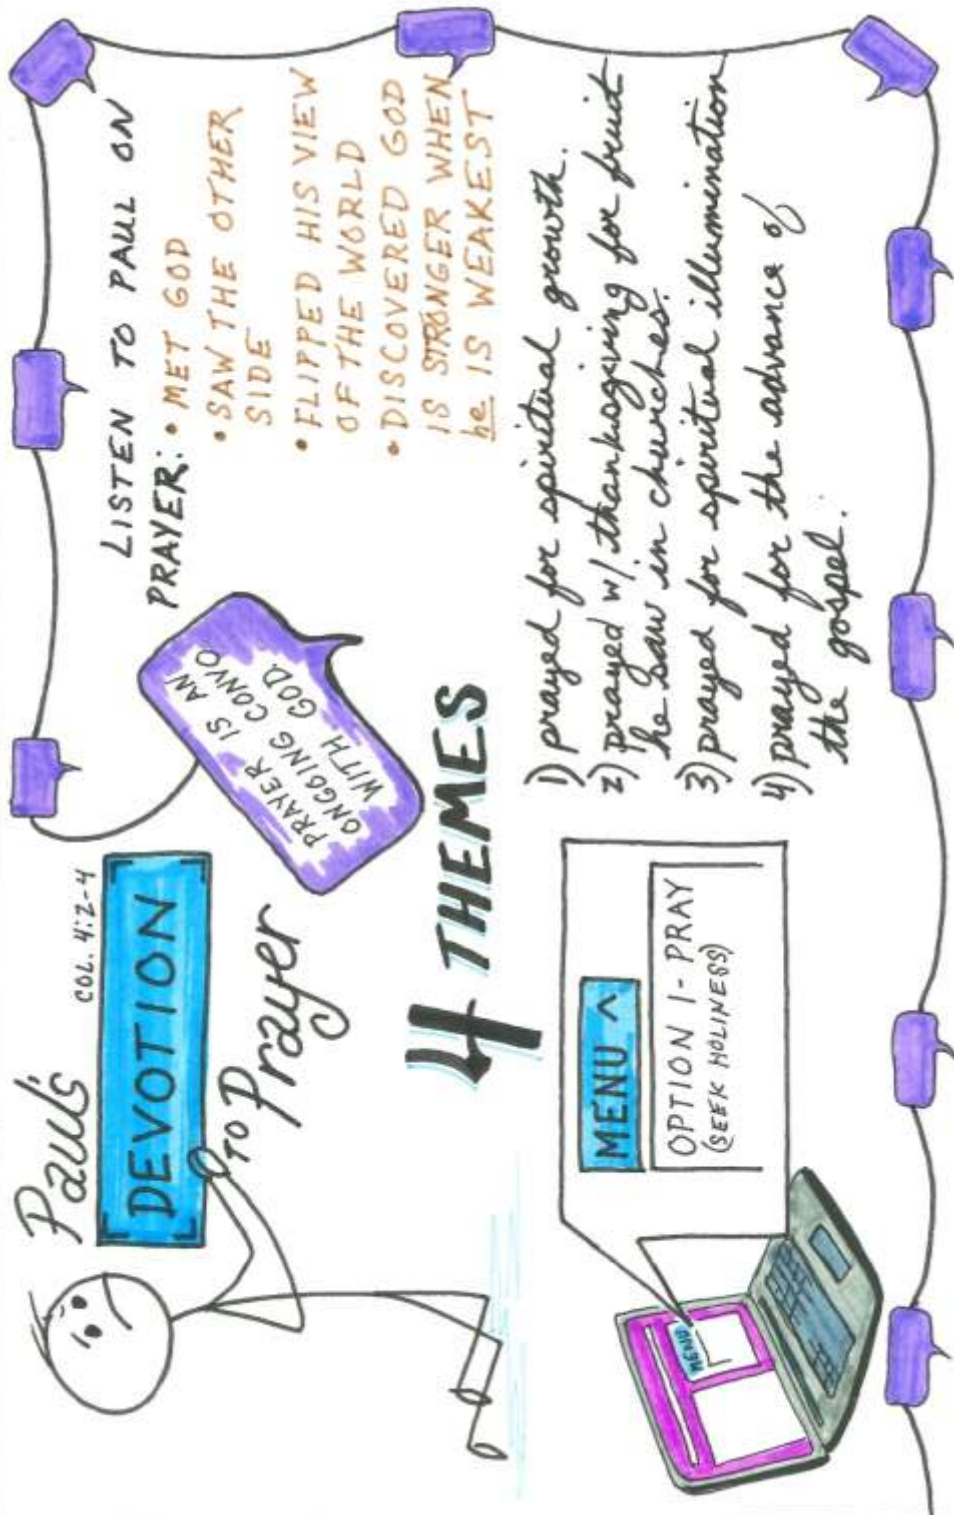 Paul's
COL. 4:2-4
DEVOTION
TO Prayer
PRAYER IS AN
ONGOING CONVO
WITH GOD.
LISTEN TO PAUL ON
PRAYER:
• MET GOD
• SAW THE OTHER
SIDE
• FLIPPED HIS VIEW
OF THE WORLD
• DISCOVERED GOD
IS STRONGER WHEN
he IS WEAKEST
4 THEMES
1) prayed for spiritual growth.
2) prayed w/ thanksgiving for fruit
he saw in churches.
3) prayed for spiritual illumination
4) prayed for the advance of
the gospel.
MENU ^
OPTION 1 - PRAY
(SEEK HOLINESS)
MENU